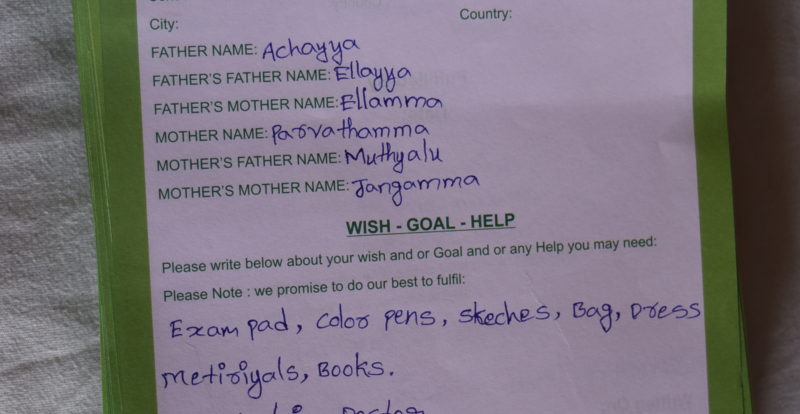 City:
Country:
FATHER NAME: Achayya
FATHER'S FATHER NAME: Ellayya
FATHER'S MOTHER NAME: Ellamma
MOTHER NAME: Parvathamma
MOTHER'S FATHER NAME: Muthyalu
MOTHER'S MOTHER NAME: Jangamma
WISH - GOAL - HELP
Please write below about your wish and or Goal and or any Help you may need:
Please Note : we promise to do our best to fulfil:
Exam pad, color pens, skeches, Bag, Dress
metiriyals, Books.